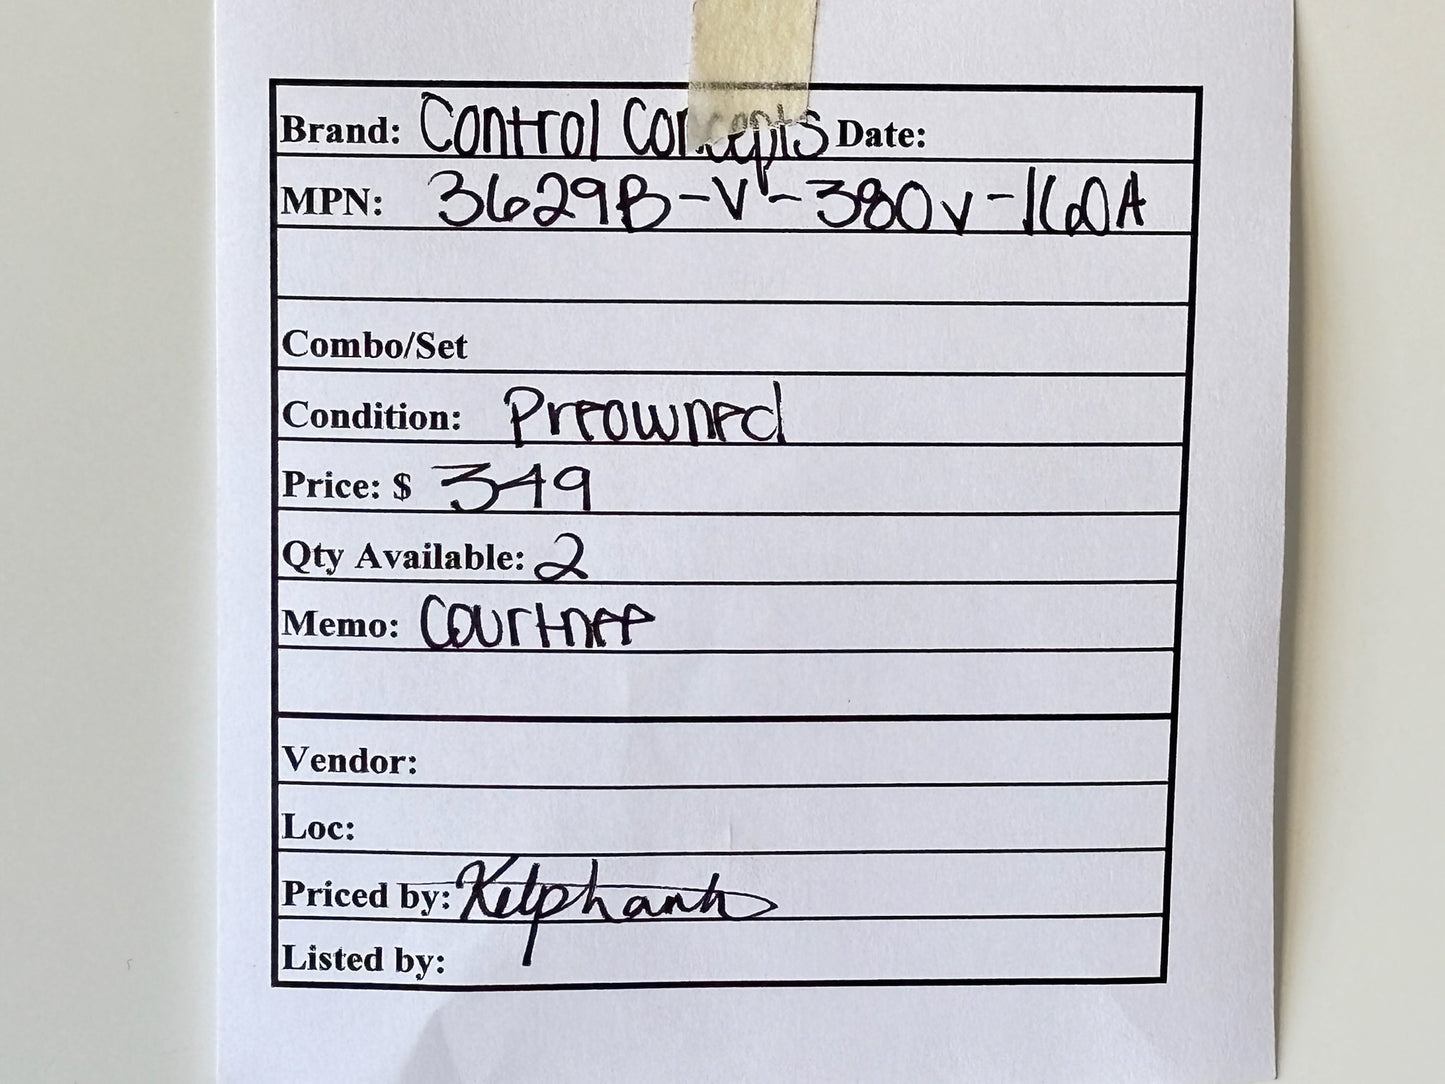 Brand: Control Concepts Date:
MPN: 3629B-V-380v-160A
Combo/Set
Condition: Preowned
Price: $ 349
Qty Available: 2
Memo: Courtnee
Vendor:
Loc:
Priced by:
Listed by: